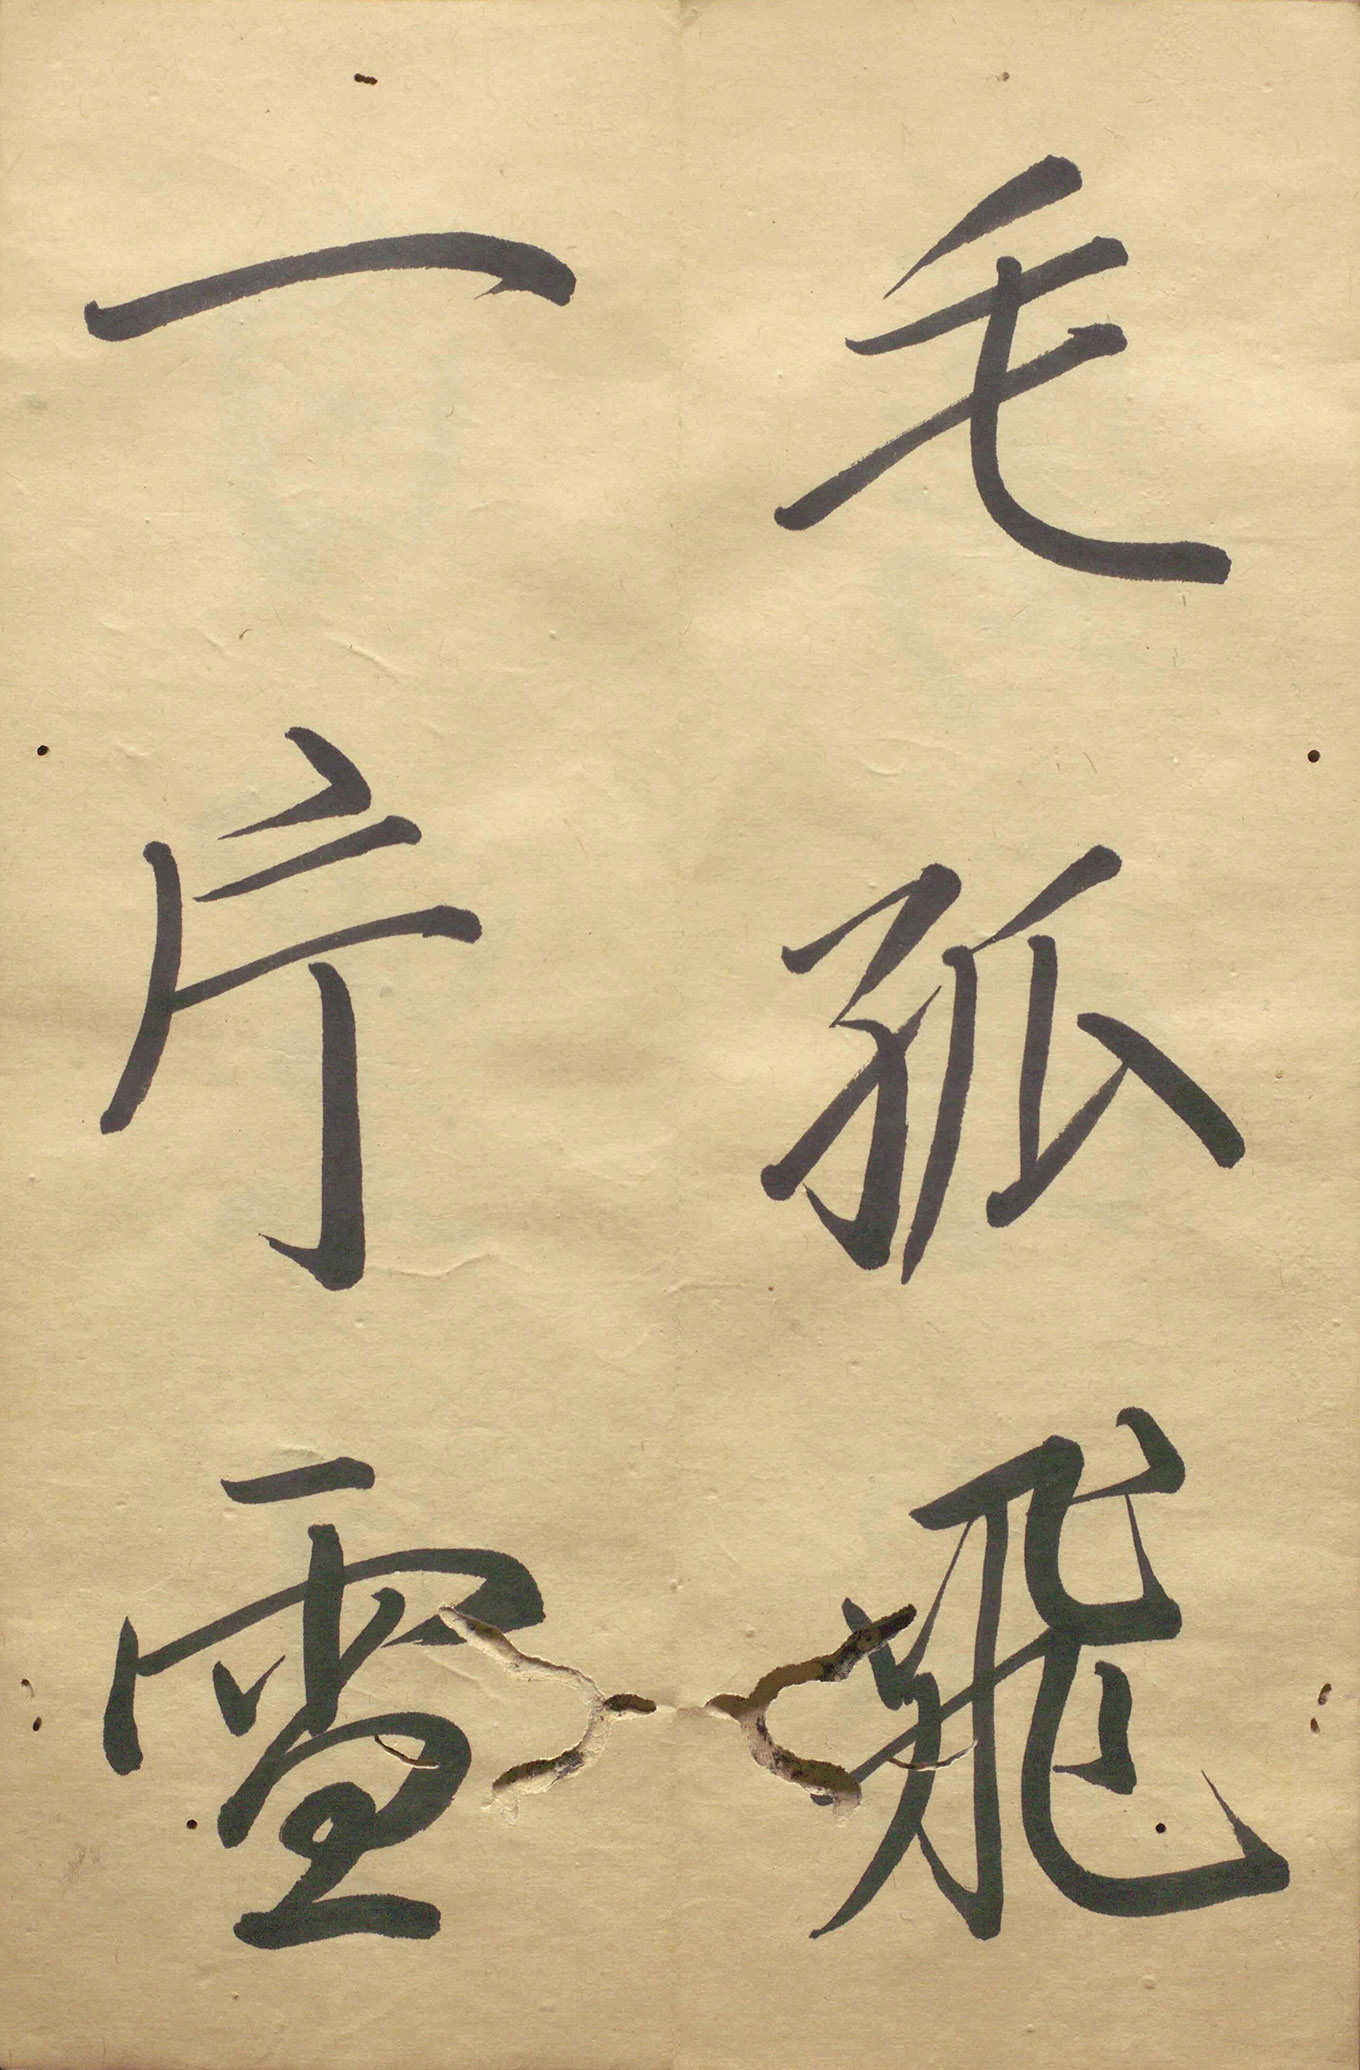 毛孤飛
一片雪